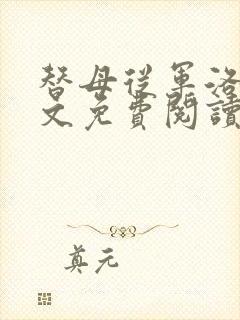 替母從軍洛
文免費閱讀
真元